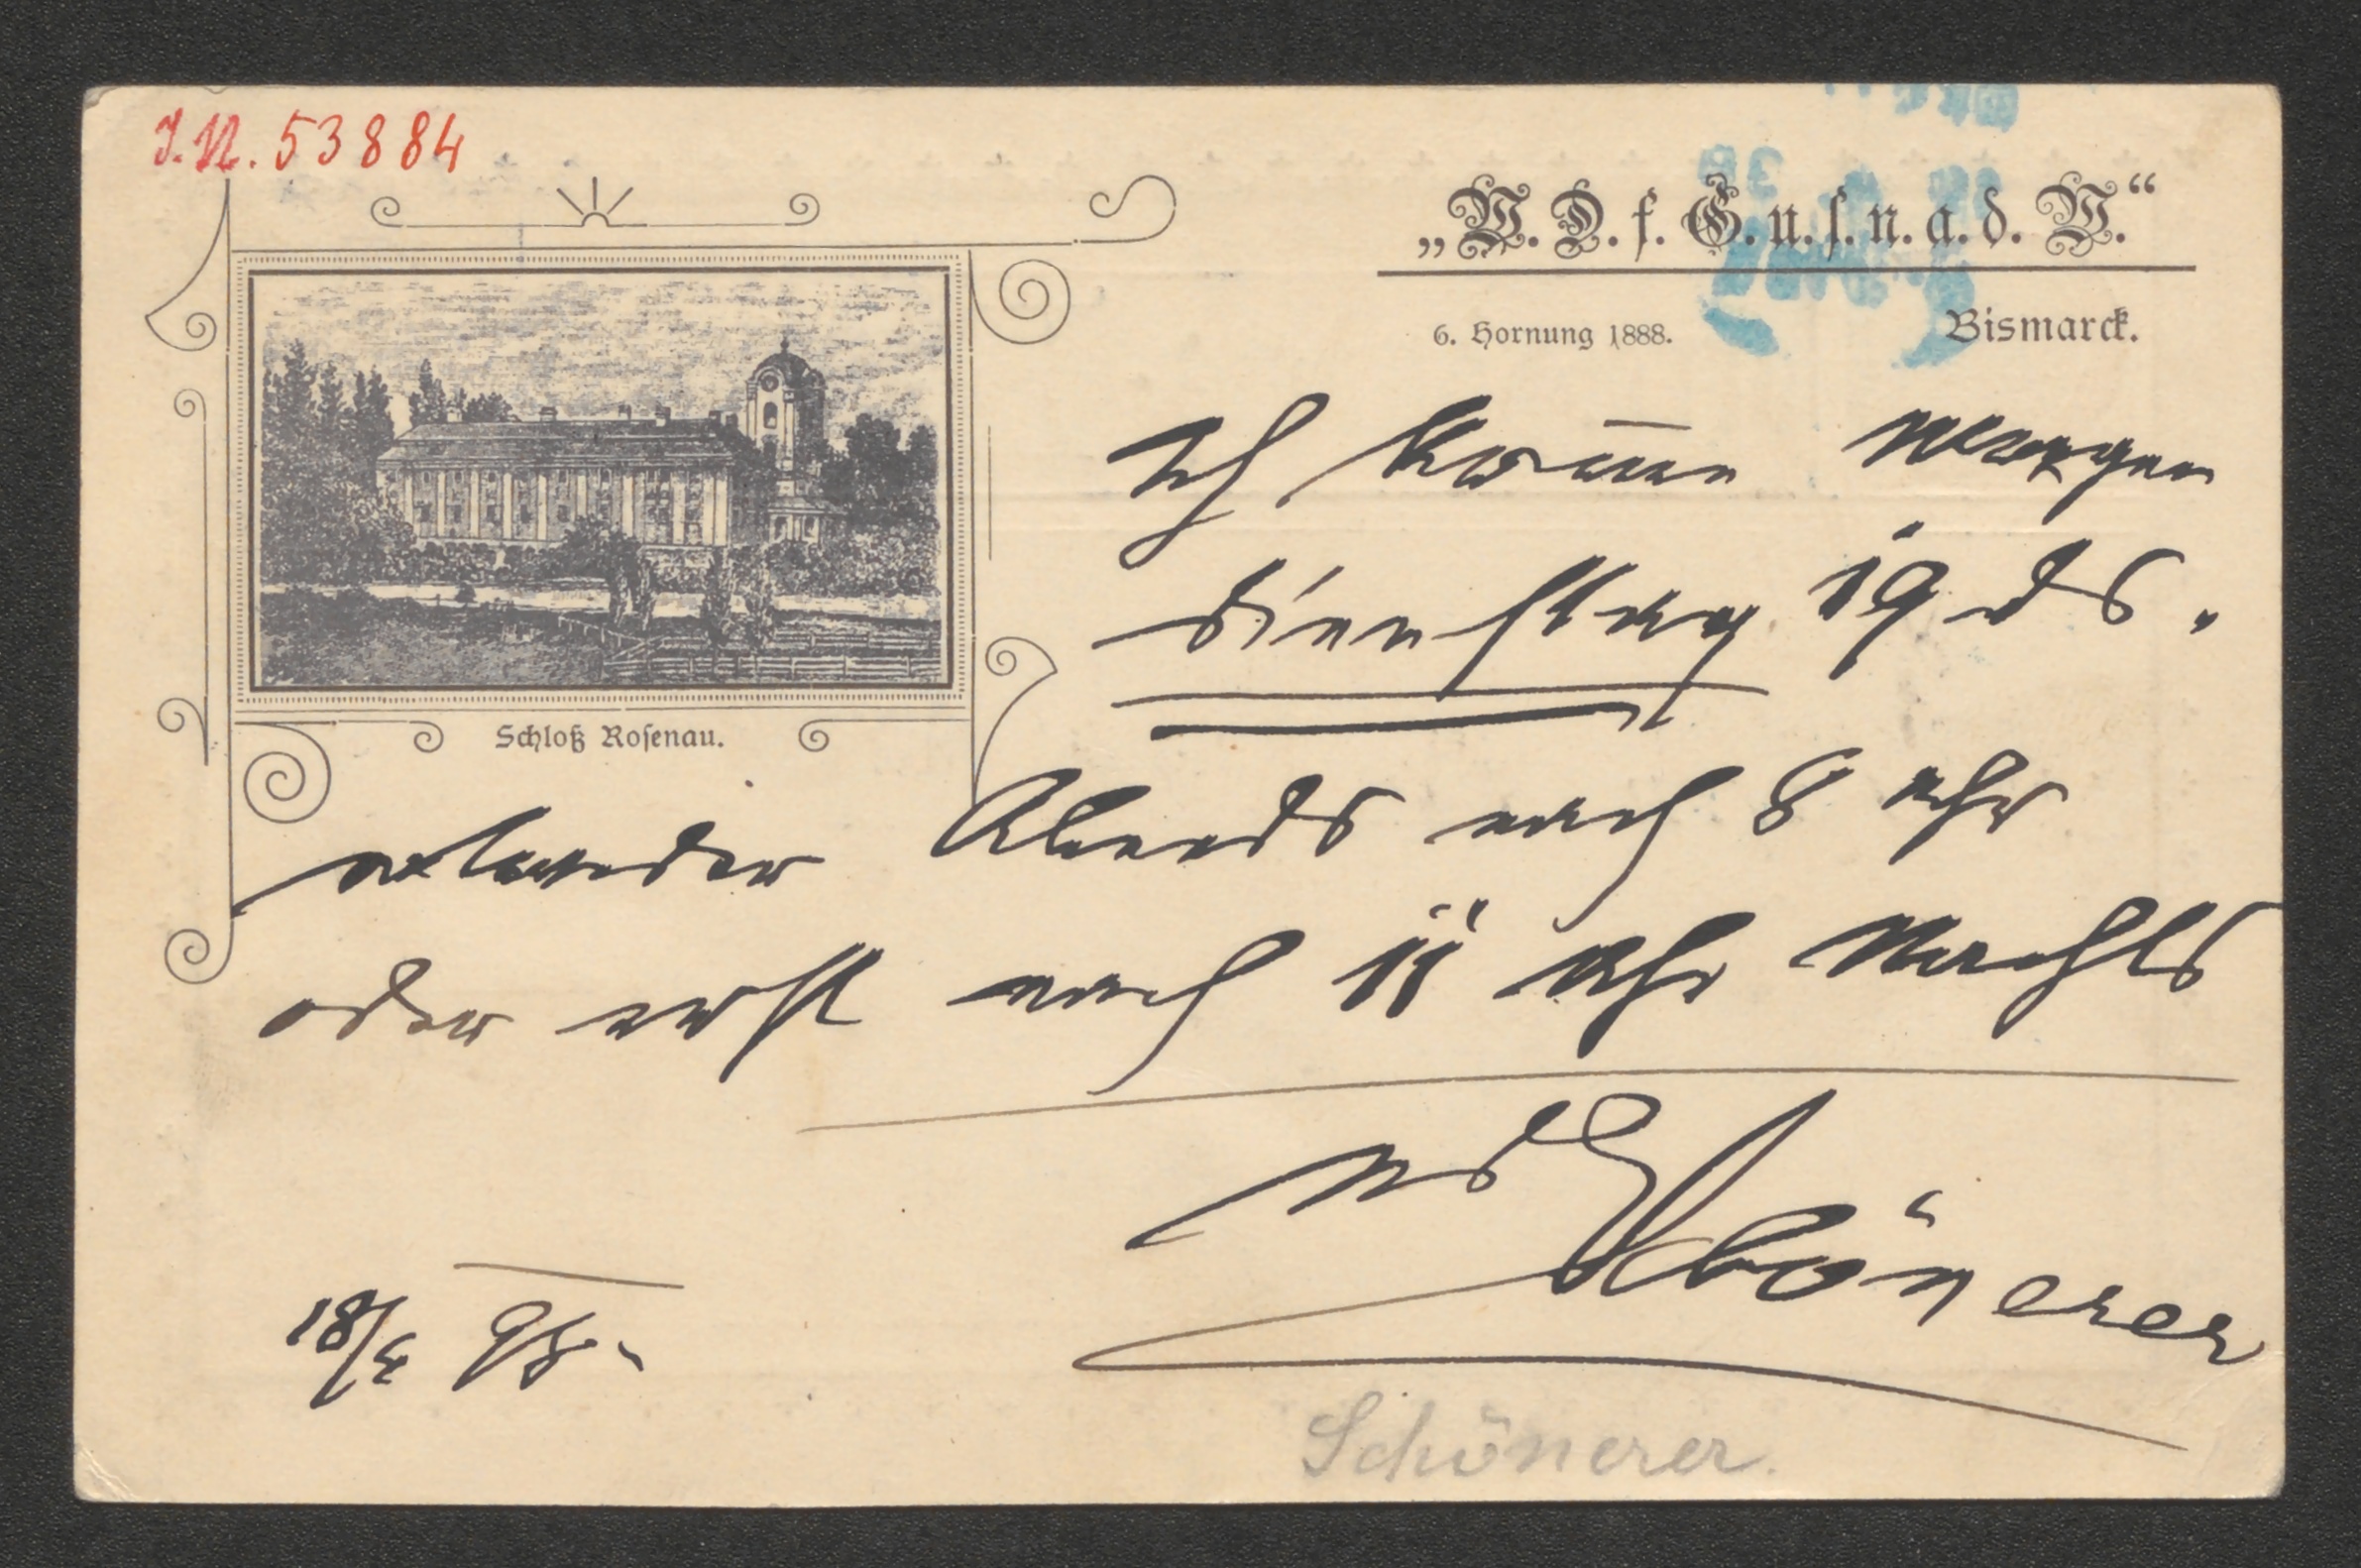 J.N. 53884
„W. D. f. G. u. ſ. n. a. d. W.“
6. Hornung 1888. Bismarck.
Ich komme morgen
Dienstag 19 ds.
Schloß Roſenau.
entweder Abends nach 8 Uhr
oder erst nach 11 Uhr Nachts
m d G
Schönerer
18/3 95.
Schönerer.